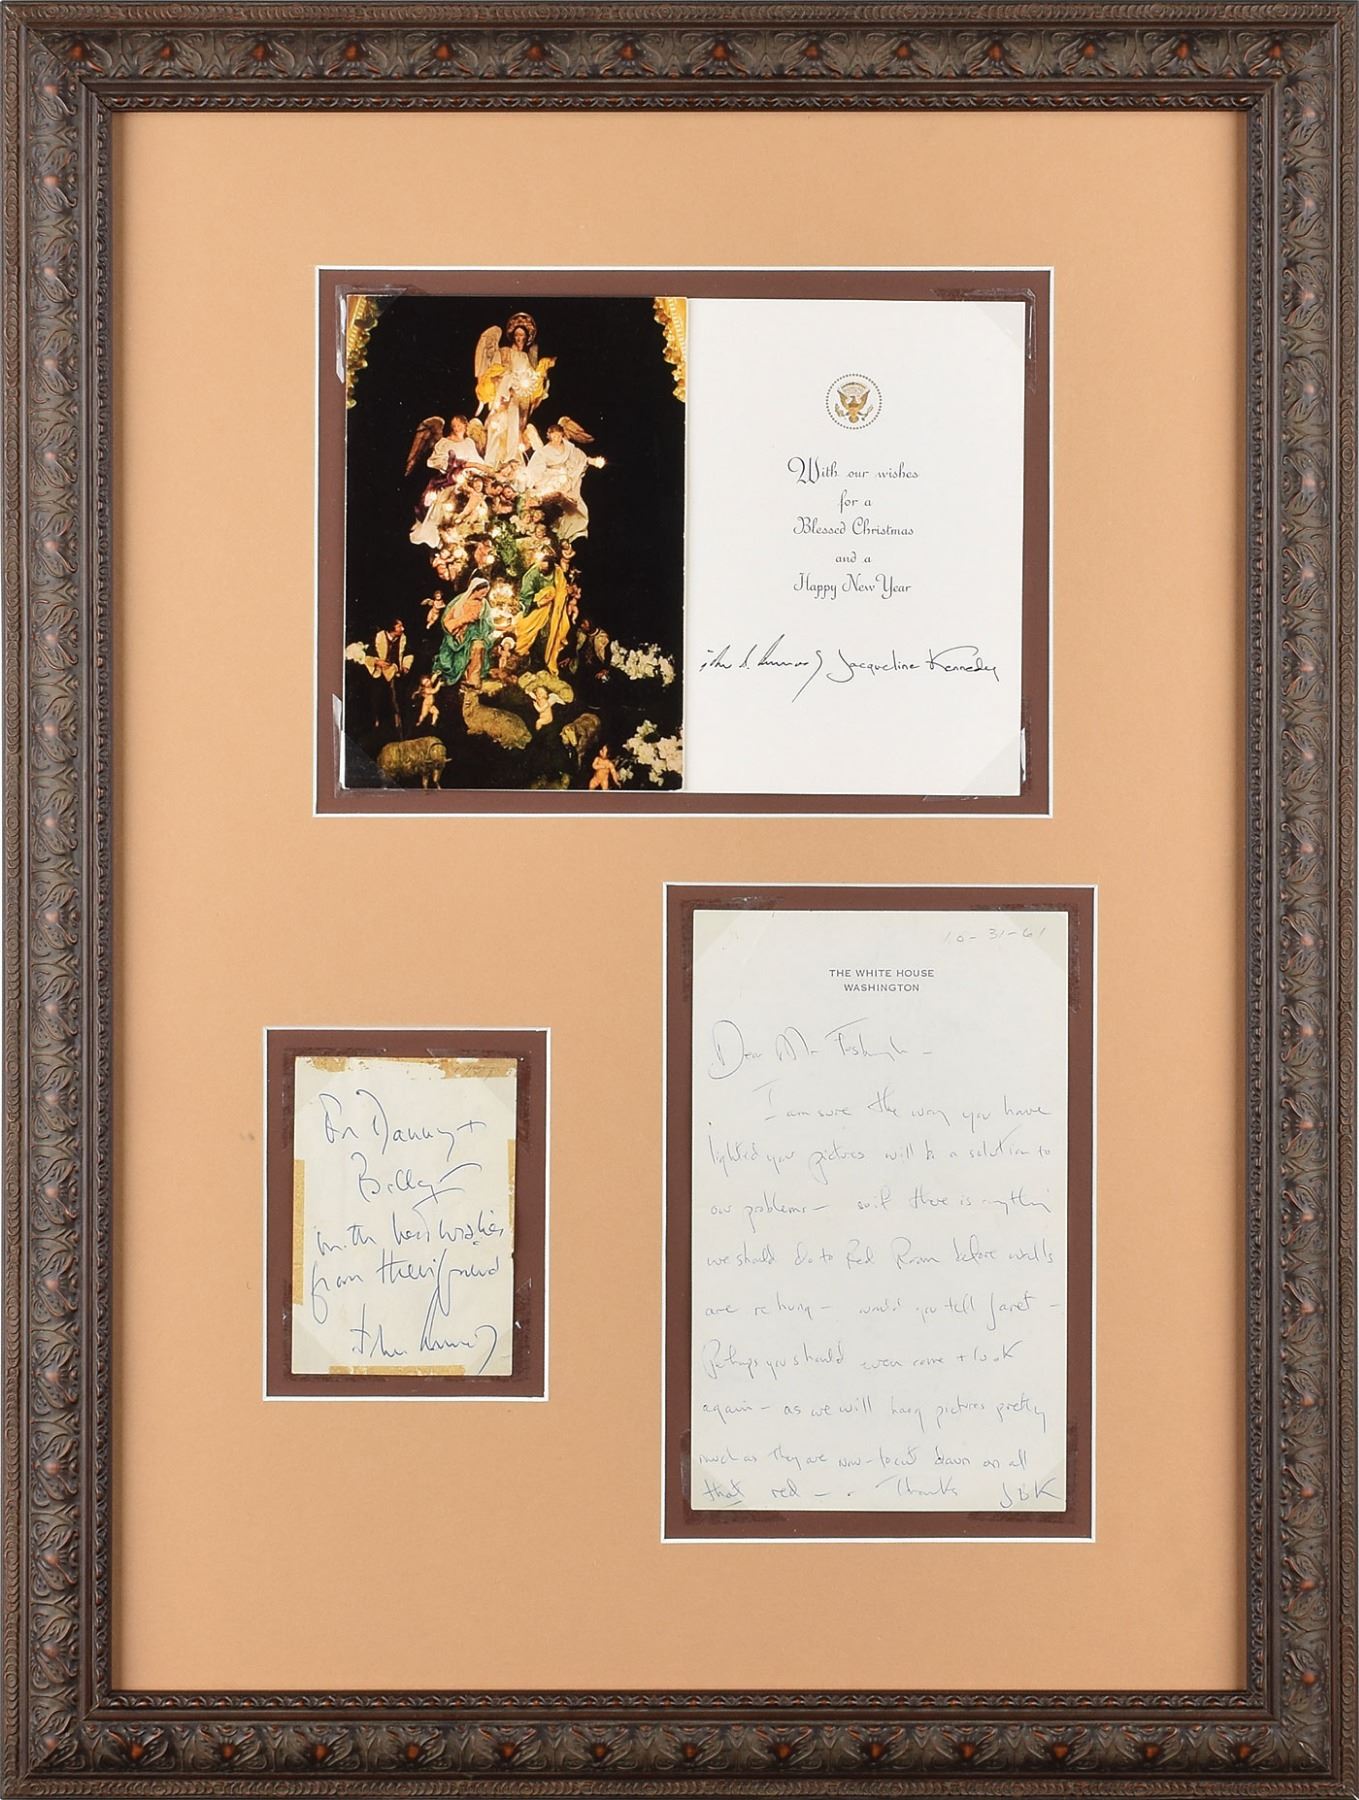 With our wishes
for a
Blessed Christmas
and a
Happy New Year
Jacqueline Kennedy
10-31-61
THE WHITE HOUSE
WASHINGTON
Dear Mr
I am sure the way you have
lighted your pictures will be a solution to
our problems – so if there is anything
we should do to Red Room before walls
are rehung – would you tell Janet –
Perhaps you should even come + look
again – as we will hang pictures pretty
much as they are now – to cut down on all
that red – . Thanks JBK
For Danny +
Billy –
with best wishes
from their friend
John Kennedy